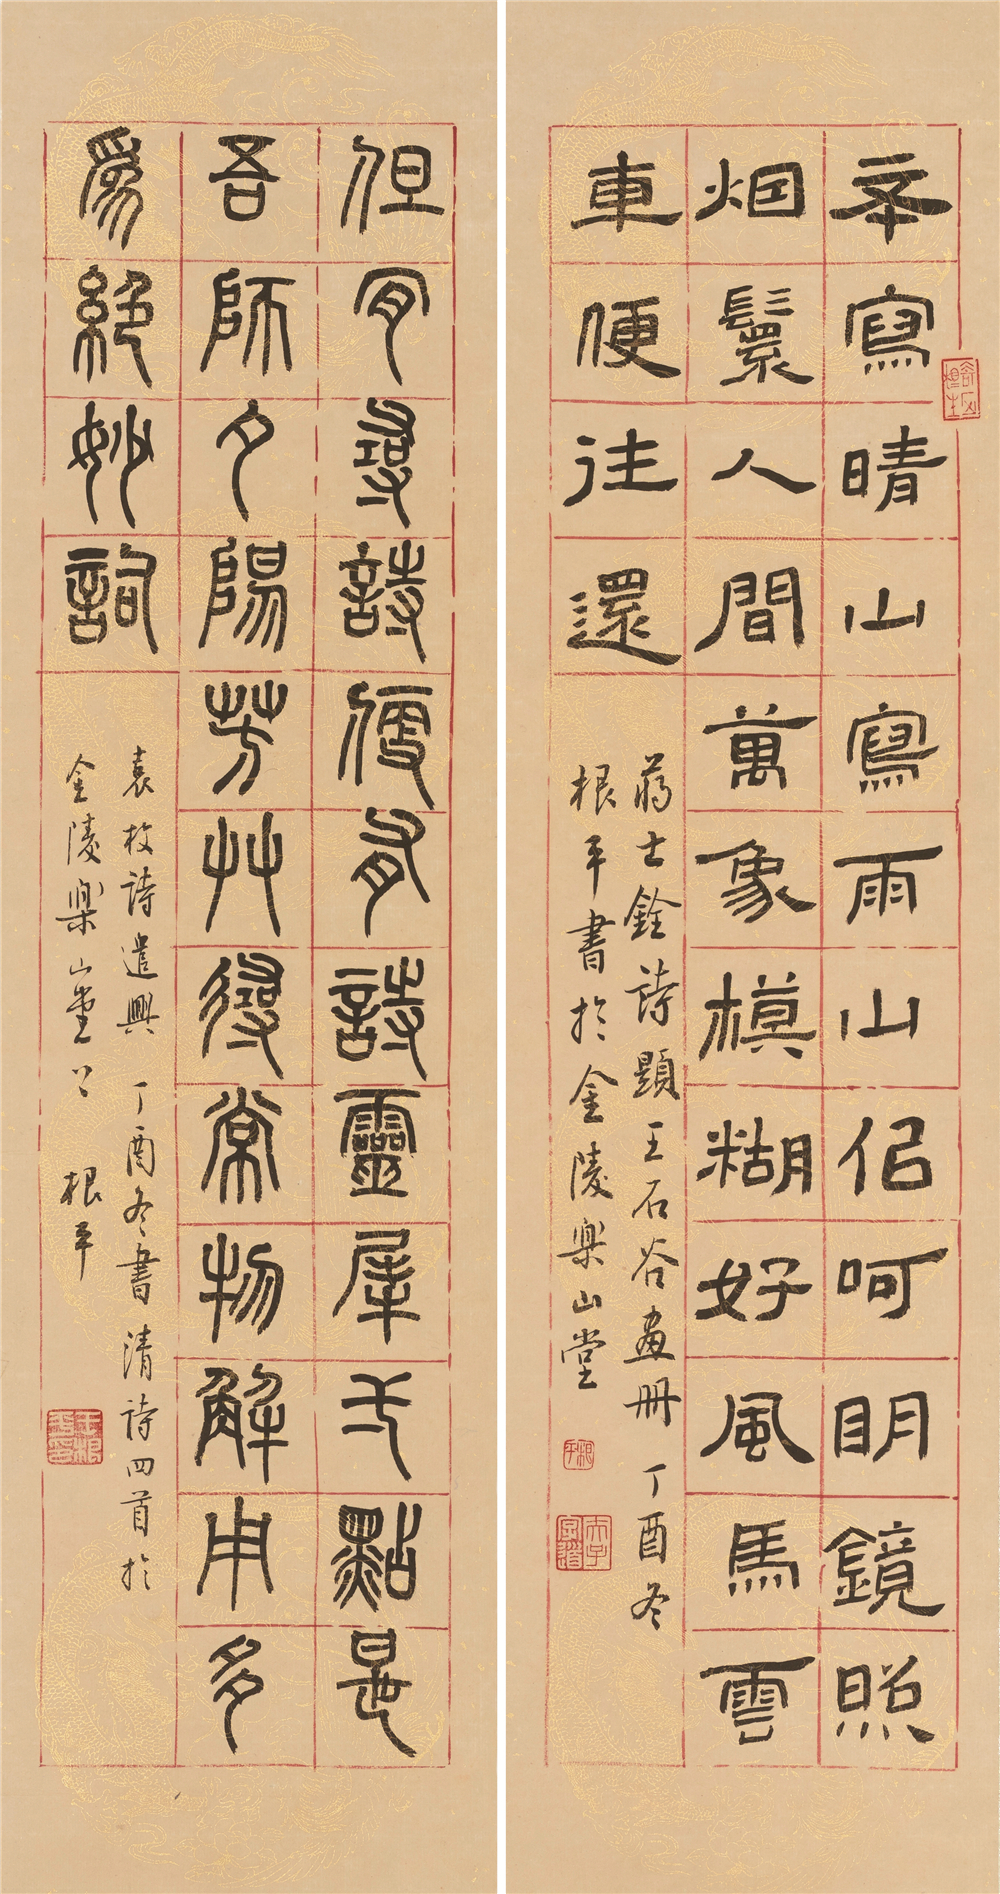 不寫晴山寫雨山佀呵眀鏡照
烟鬟人間萬象模糊好風馬雲
車便往還
蔣士銓詩題王石谷畫冊 丁酉冬
根平書於金陵樂山堂
根平
但肯尋詩便有詩靈犀弌點是
吾師夕陽芳艸尋常物解用多
爲絕妙詞
袁枚詩遣興 丁酉冬書 清詩四首於
金陵樂山堂 根平